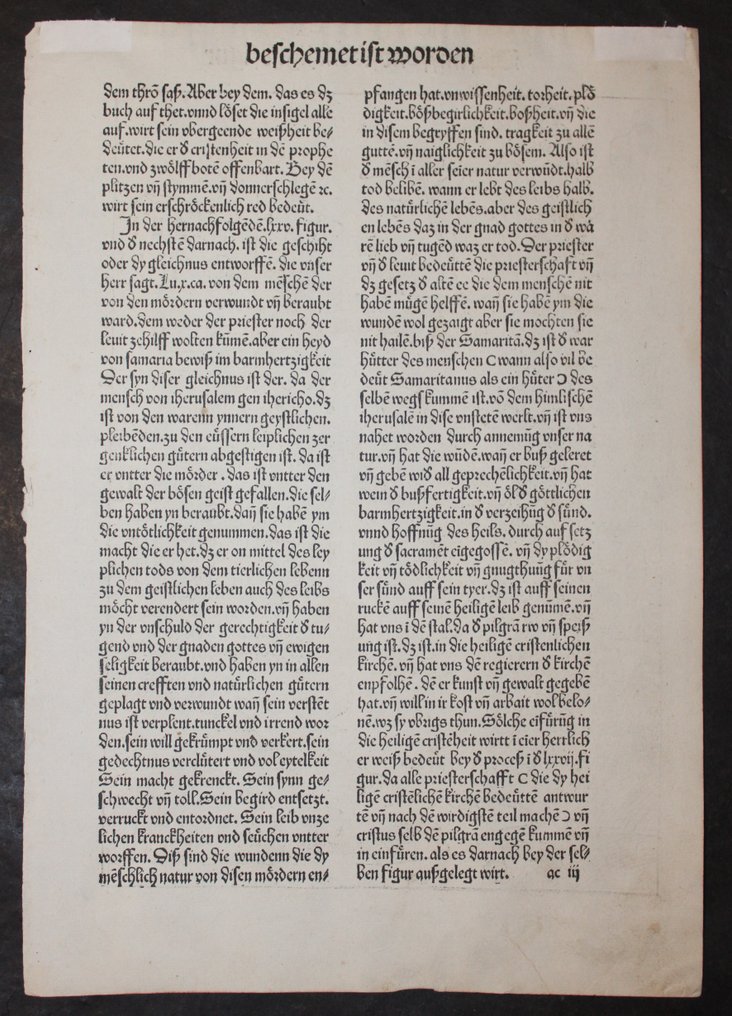 beschemet ist worden
dem thrō saß. Aber bey dem. das es dz
buch auf thet.vnnd löset die insigel alle
auf.wirt sein vbergeende weißheit be⸗
deütet.die er d᷑ cristenheit in dē prophe
ten.vnd zwölff botē offenbart. Bey dē
plitzen vñ stymmē.vñ donnerschlegē ⁊c.
wirt sein erschröckenlich red bedeüt.
In der hernachfolgēdē.lxxv. figur.
vnd d᷑ nechstē darnach. ist die geschiht
oder dy gleichnus entworffē. die vnser
herr sagt. Lu.x.ca. von dem mēschē der
von den mördern verwundt vñ beraubt
ward.dem weder der priester noch der
leuit zehilff wolten kūmē.aber ein heyd
von samaria bewiß im barmhertzigkeit
Der syn diser gleichnus ist der. da der
mensch von iherusalem gen ihericho.dz
ist von den warenn ynnern geystlichen.
pleibēden.zu den eüssern leiplichen zer
genklichen gütern abgestigen ist. da ist
er vntter die mörder . das ist vntter den
gewalt der bösen geist gefallen.die sel⸗
ben haben yn beraubt.dañ sie habē ym
die vntötlichkeit genummen.das ist die
macht die er het.dz er on mittel des ley
plichen tods von dem tierlichen lebenn
zu dem geistlichen leben auch des leibs
möcht verendert sein worden.vñ haben
yn der vnschuld der gerechtigkeit d᷑ tu⸗
gend vnd der gnaden gottes vñ ewigen
seligkeit beraubt.vnd haben yn in allen
seinen crefften vnd natürlichen gütern
geplagt vnd verwundt wañ sein verstēt
nus ist verplent.tunckel vnd irrend wor
den.sein will gekrümpt vnd verkert.sein
gedechtnus verdütert vnd vol eytelkeit
Sein macht gekrenckt. Sein synn ge⸗
schwecht vñ toll.Sein begird entsetzt.
verruckt vnd entordnet. Sein leib vnze
lichen kranckheiten vnd seüchen vntter
worffen. Diß sind die wundenn die dy
mēschlich natur von disen mördern en⸗
pfangen hat.vnwissenheit. torheit. plö
digkeit.bößbegirlichkeit.boßheit.vñ die
in disem begryffen sind. tragkeit zu allē
guttē.vñ naiglichkeit zu bösem. Also ist
d᷑ mēsch ī aller seier natur verwūdt.halb
tod belibē. wann er lebt des leibs halb.
des natürlichē lebēs.aber des geistlich
en lebēs daz in der gnad gottes in d᷑ wa
rē lieb vñ tugēd waz er tod.Der priester
vñ d᷑ leuit bedeüttē die priesterschaft vñ
dz gesetz d᷑ altē ee die dem menschē nit
habē mügē helffē. wañ sie habē ym die
wundē wol gezaigt aber sie mochten sie
nit hailē.biß der Samaritā.dz ist d᷑ war
hütter des menschen ( wann also vil be
deüt Samaritanus als ein hüter ) des
selbē wegs kummē ist.vō dem himlischē
iherusalē in dise vnstetē werlt.vñ ist vns
nahet worden durch annemūg vnser na
tur.vñ hat die wūdē.wañ er buß geleret
vñ gebē wid᷑ all geprechēlichkeit.vñ hat
wein d᷑ bußfertigkeit.vñ öl d᷑ göttlichen
barmhertzigkeit.in d᷑ verzeihūg d᷑ sünd.
vnnd hoffnūg des heils. durch auf setz
ung d᷑ sacramēt eigegossē. vñ dy plödig
keit vñ tödlichkeit vñ gnugthuūg für vn
ser sünd auff sein tyer.dz ist auff seinen
ruckē auff seinē heiligē leib genūmē.vñ
hat vns ī dē stal.da d᷑ pilgrā rw vñ speiß
ung ist.dz ist.in die heiligē cristenlichen
kirchē. vñ hat vns dē regierern d᷑ kirchē
enpfolhē. dē er kunst vñ gewalt gegebē
hat.vñ will in ir kost vñ arbait wol belo⸗
nē.wz sy vbrigs thun.Sölche eifürūg in
die heiligē cristēheit wirtt ī eier herrlich
er weiß bedeüt bey d᷑ proceß ī d᷑ lxxvij.fi
gur.da alle priesterschafft ( die dy hei
ligē cristēlichē kirchē bedeüttē antwur
tē vñ nach dē wirdigstē teil machē ) vñ
cristus selb dē pilgrā engegē kummē vñ
in einfüren. als es darnach bey der sel⸗
ben figur außgelegt wirt.
qc iij